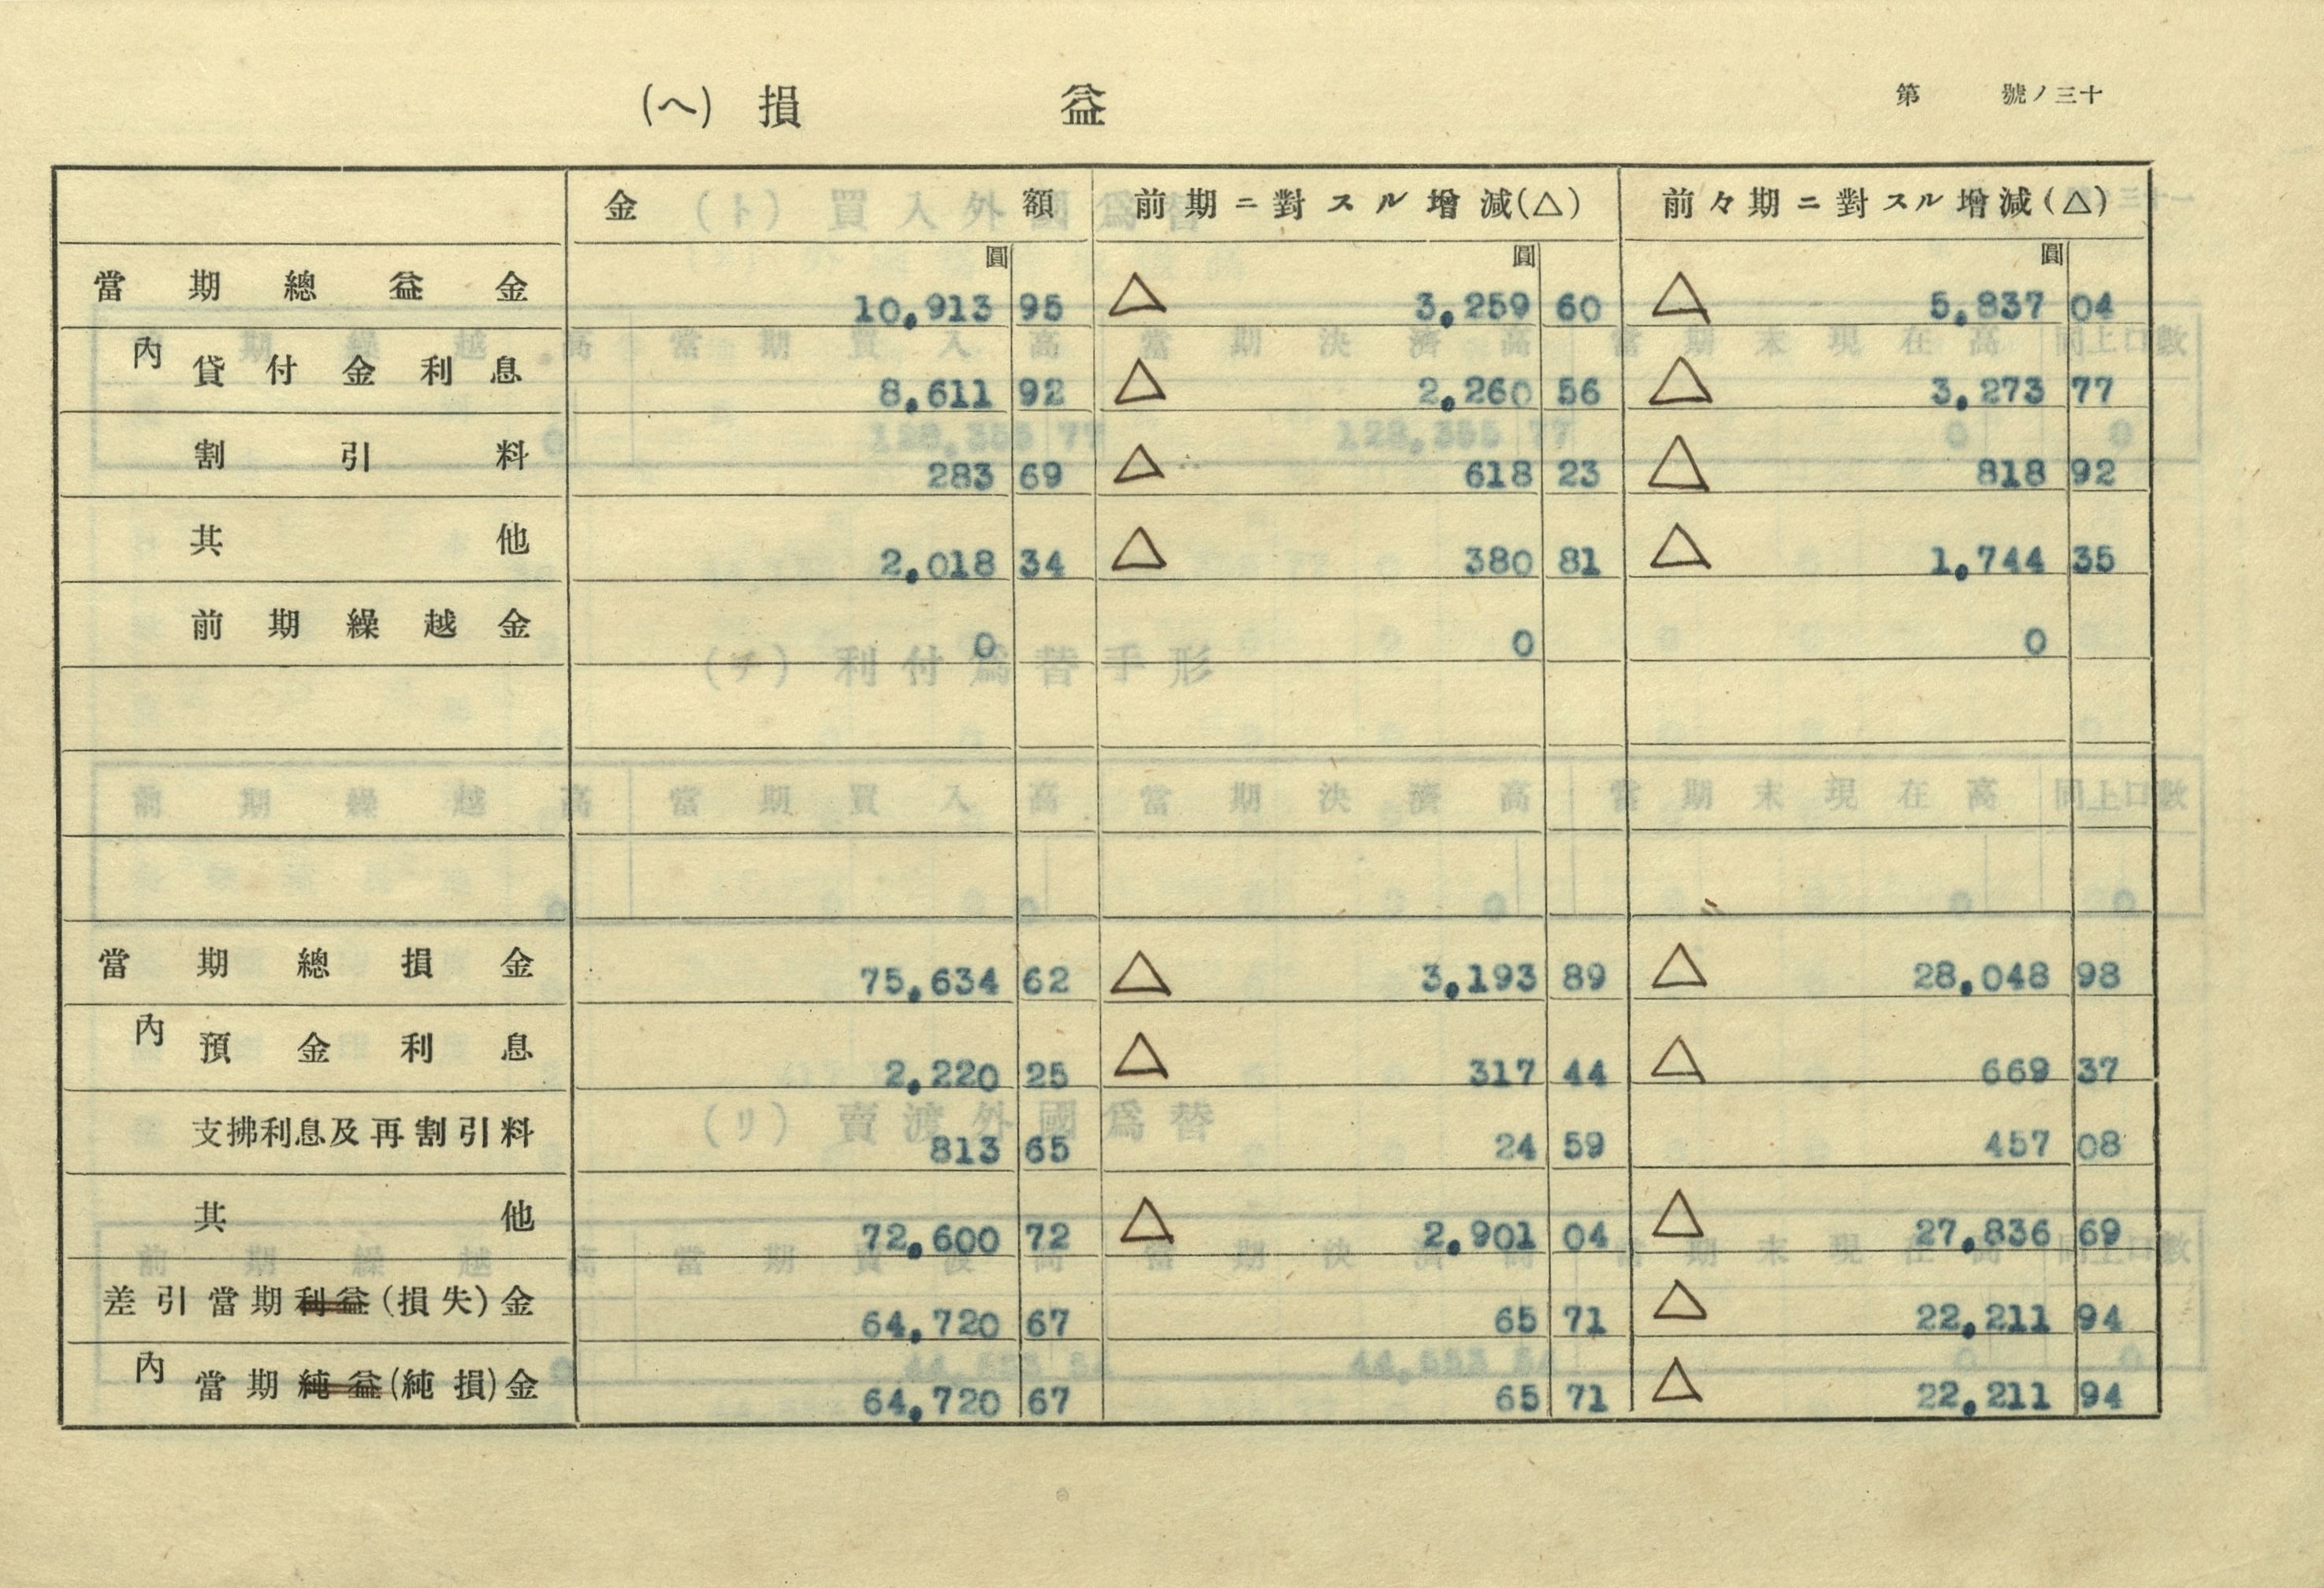 (ヘ) 損 益
第 號ノ三十
金 額 前期ニ對スル增減(△) 前々期ニ對スル增減(△)
圓 圓 圓
當期總益金 10,913 95 △ 3,259 60 △ 5,837 04
內 貸付金利息 8,611 92 △ 2,260 56 △ 3,273 77
割引料 283 69 △ 618 23 △ 818 92
其他 2,018 34 △ 380 81 △ 1,744 35
前期繰越金 0 0 0
當期總損金 75,634 62 △ 3,193 89 △ 28,048 98
內 預金利息 2,220 25 △ 317 44 △ 669 37
支拂利息及再割引料 813 65 24 59 457 08
其他 72,600 72 △ 2,901 04 △ 27,836 69
差引當期利益(損失)金 64,720 67 65 71 △ 22,211 94
內 當期純益(純損)金 64,720 67 65 71 △ 22,211 94